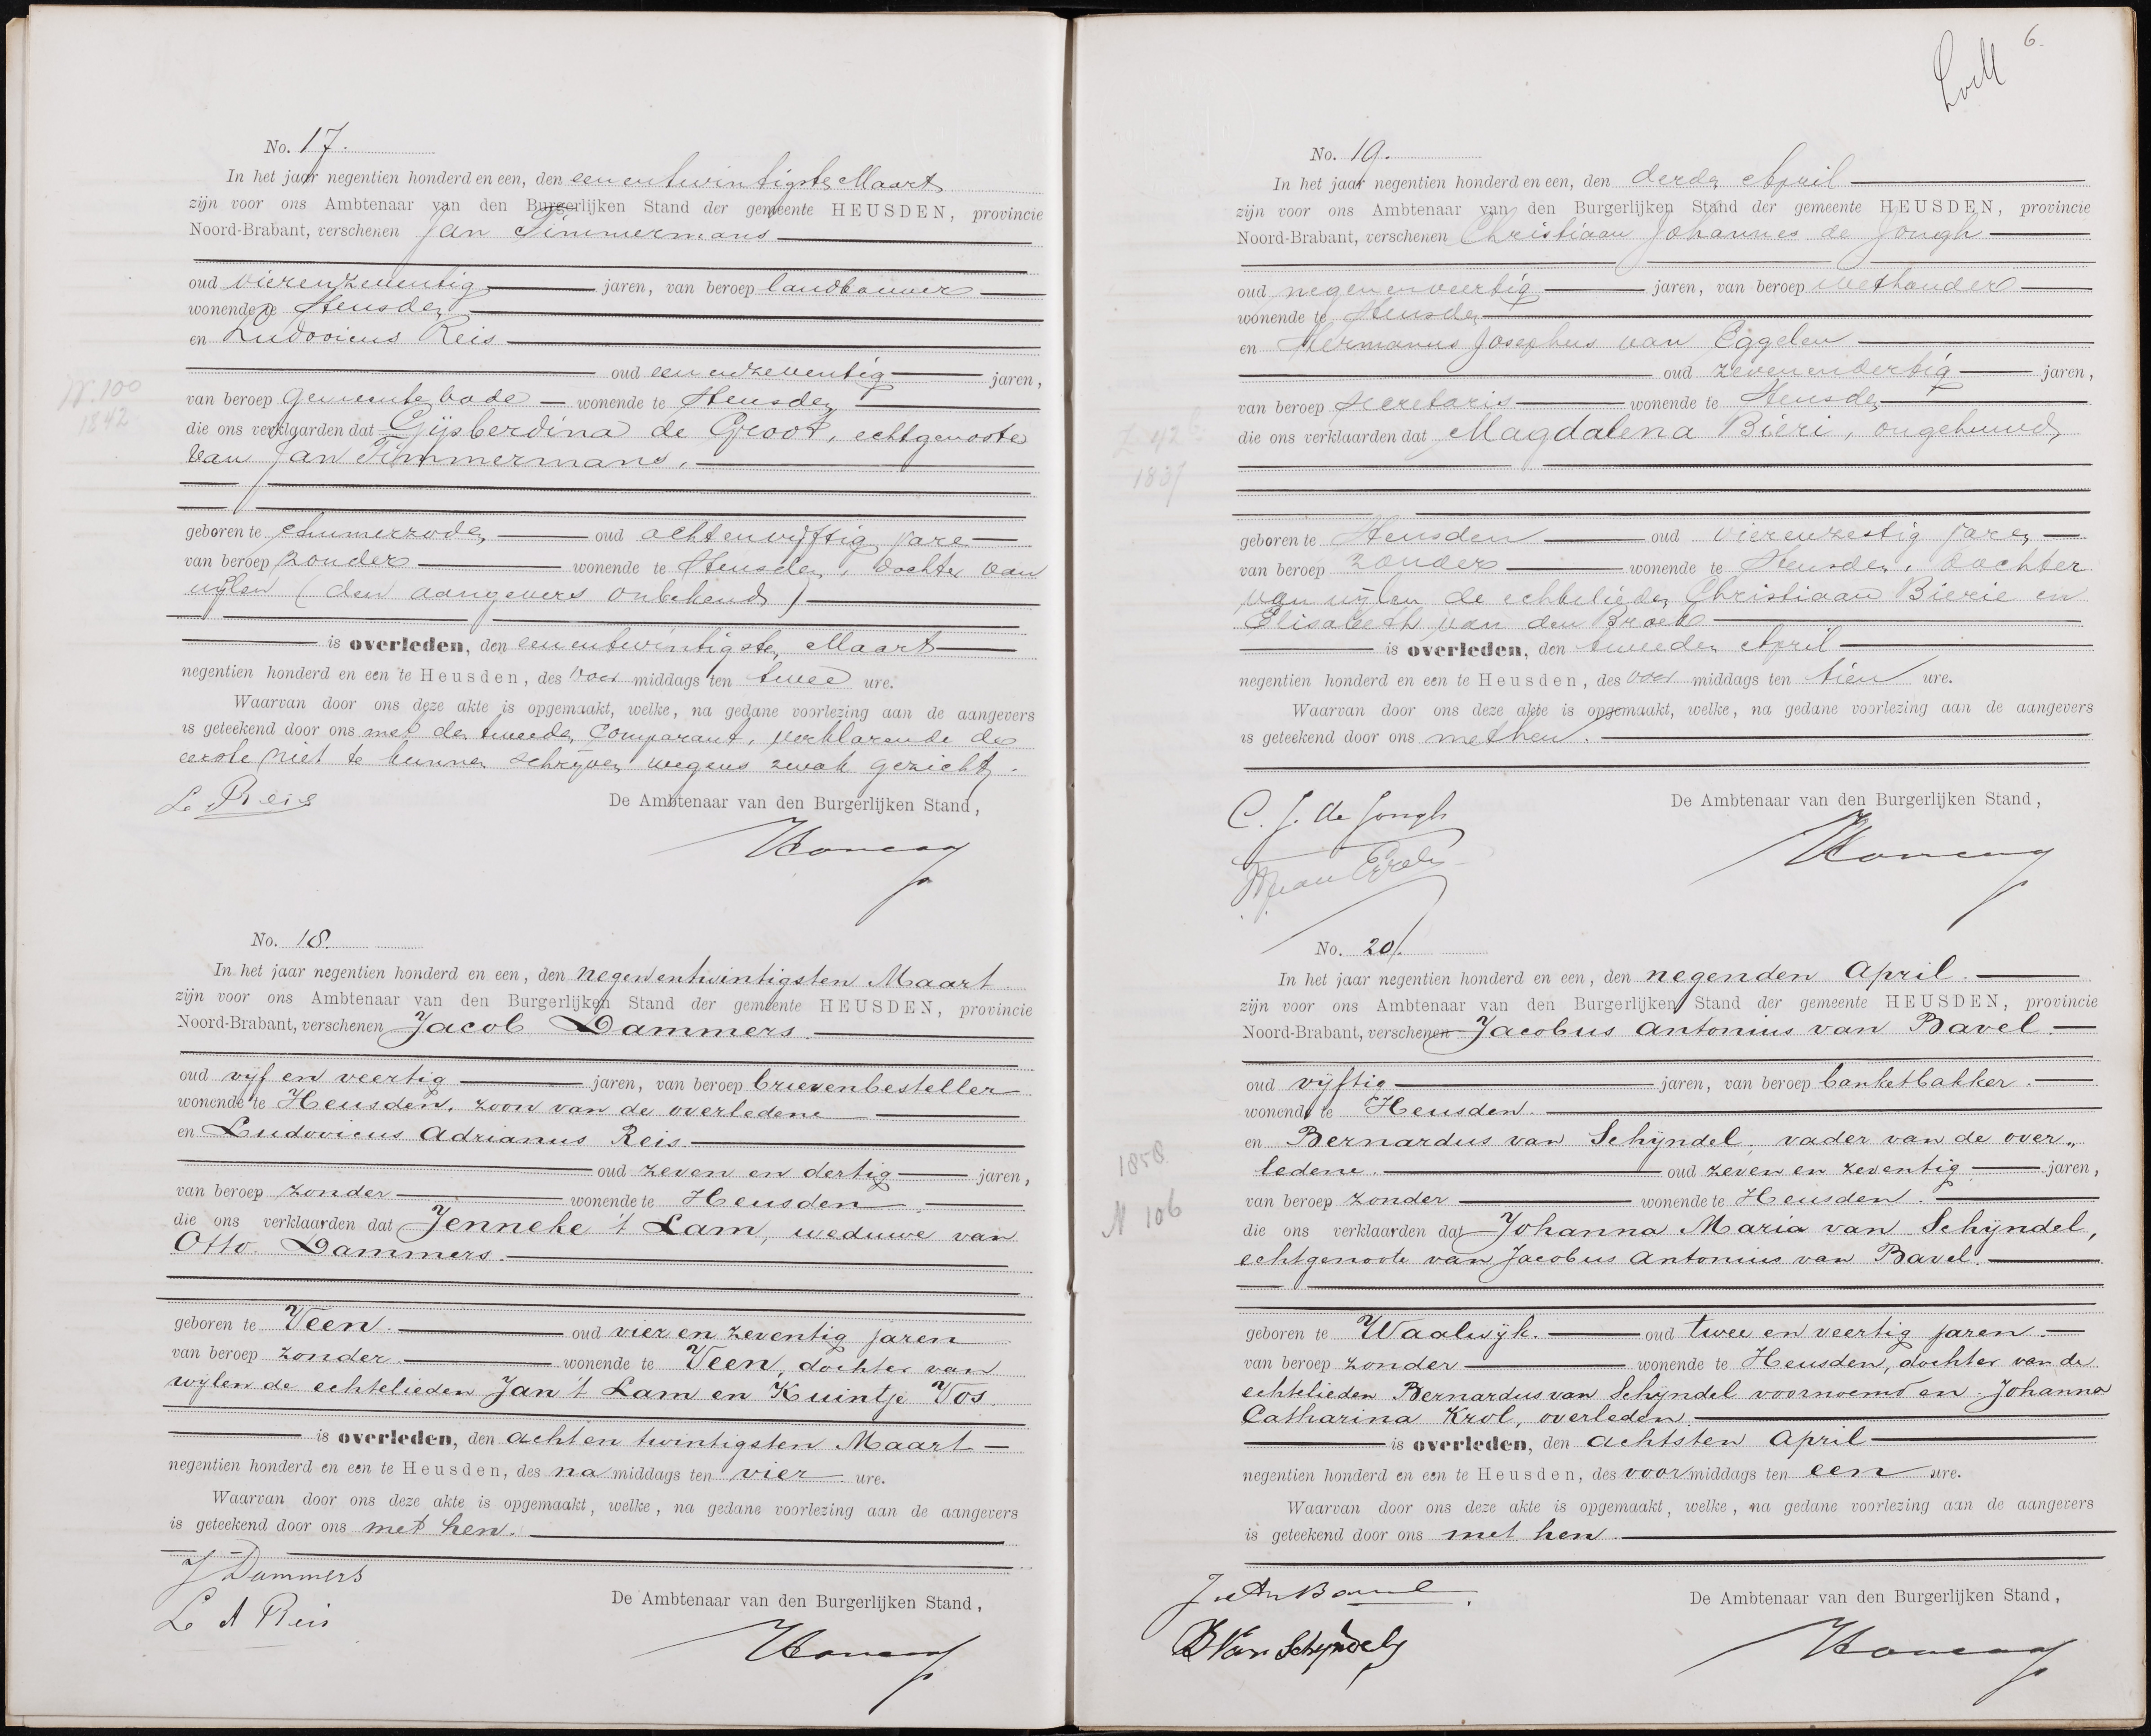 No. 17.
In het jaar negentien honderd en een, den eenentwintigsten Maart
zijn voor ons Ambtenaar van den Burgerlijken Stand der gemeente HEUSDEN, provincie
Noord-Brabant, verschenen Jan Timmermans
oud vierenzeventig jaren, van beroep landbouwer
wonende te Heusden
en Ludovicus Reis
oud eenenzeventig jaren,
N. 100
1842
van beroep gemeentebode wonende te Heusden
die ons verklaarden dat Gijsberdina de Groot, echtgenoote
van Jan Timmermans.
geboren te Ammerzoden oud achtenvijftig jare
van beroep zonder wonende te Heusden, dochter van
wijlen (den aangevers onbekend)
is overleden, den eenentwintigsten Maart
negentien honderd en een te Heusden, des voor middags ten twee ure.
Waarvan door ons deze akte is opgemaakt, welke, na gedane voorlezing aan de aangevers
is geteekend door ons met den tweeden Comparant, verklarende de
eerste niet te kunnen schrijven wegens zwak gezicht.
L. Reis
De Ambtenaar van den Burgerlijken Stand,
No. 18.
In het jaar negentien honderd en een, den negenentwintigsten Maart
zijn voor ons Ambtenaar van den Burgerlijken Stand der gemeente HEUSDEN, provincie
Noord-Brabant, verschenen Jacob Dammers.
oud vijf en veertig jaren, van beroep brievenbesteller
wonende te Heusden, zoon van de overledene
en Ludovicus Adrianus Reis
oud zeven en dertig jaren,
van beroep zonder wonende te Heusden.
die ons verklaarden dat Jenneke 't Lam, weduwe van
Otto Dammers.
geboren te Veen. oud vier en zeventig jaren
van beroep zonder. wonende te Veen, dochter van
wijlen de echtelieden Jan 't Lam en Kuintje Vos.
is overleden, den achten twintigsten Maart
negentien honderd en een te Heusden, des na middags ten vier ure.
Waarvan door ons deze akte is opgemaakt, welke, na gedane voorlezing aan de aangevers
is geteekend door ons met hen.
J Dammers
L A Reis
De Ambtenaar van den Burgerlijken Stand,
6.
No. 19.
In het jaar negentien honderd en een, den derden April
zijn voor ons Ambtenaar van den Burgerlijken Stand der gemeente HEUSDEN, provincie
Noord-Brabant, verschenen Christiaan Johannes de Jongh
oud negenenveertig jaren, van beroep wethouder
wonende te Heusden
en Hermanus Josephus van Eggelen
oud zevenendertig jaren,
van beroep secretaris wonende te Heusden
die ons verklaarden dat Magdalena Bieri, ongehuwd,
geboren te Heusden oud vierenzestig jaren
van beroep zonder wonende te Heusden, dochter
van wijlen de echtelieden Christiaan Bierie en
Elisabeth van den Broek
is overleden, den tweeden April
negentien honderd en een te Heusden, des voor middags ten tien ure.
Waarvan door ons deze akte is opgemaakt, welke, na gedane voorlezing aan de aangevers
is geteekend door ons met hen.
C. J. de Jongh
De Ambtenaar van den Burgerlijken Stand,
No. 20.
In het jaar negentien honderd en een, den negenden April.
zijn voor ons Ambtenaar van den Burgerlijken Stand der gemeente HEUSDEN, provincie
Noord-Brabant, verschenen Jacobus Antonius van Bavel.
oud vijftig jaren, van beroep banketbakker.
wonende te Heusden.
en Bernardus van Schijndel, vader van de over„
1858
ledene. oud zeven en zeventig jaren,
van beroep zonder wonende te Heusden.
N 106
die ons verklaarden dat Johanna Maria van Schijndel,
echtgenoote van Jacobus Antonius van Bavel.
geboren te Waalwijk. oud twee en veertig jaren.
van beroep zonder wonende te Heusden, dochter van de
echtelieden Bernardus van Schijndel voornoemd en Johanna
Catharina Krol, overleden.
is overleden, den achtsten April
negentien honderd en een te Heusden, des voor middags ten een ure.
Waarvan door ons deze akte is opgemaakt, welke, na gedane voorlezing aan de aangevers
is geteekend door ons met hen.
De Ambtenaar van den Burgerlijken Stand,
B Van Schijndel